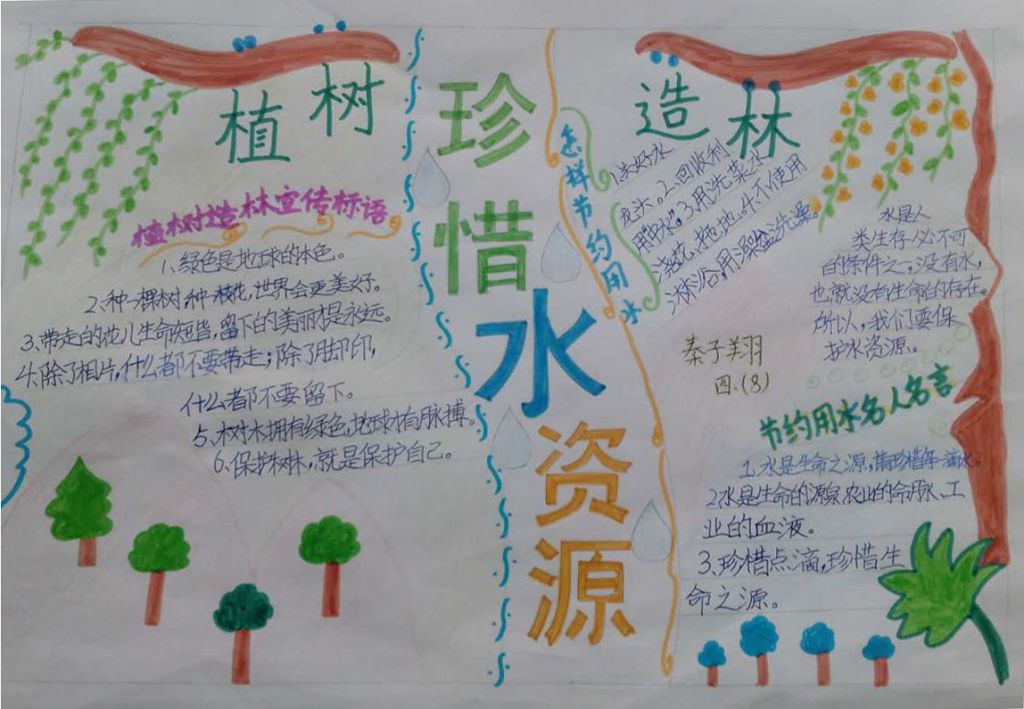 植树
造林
珍惜水资源
植树造林宣传标语
1、绿色是地球的本色。
2、种一棵树,种一枝花,世界会更美好。
3、带走的花儿生命短暂,留下的美丽才是永远。
4、除了相片,什么都不要带走;除了脚印,
什么都不要留下。
5、树木拥有绿色,地球才有脉搏。
6、保护树林,就是保护自己。
怎样节约用水
1.关好水
龙头。2.回收利
用中水。3.用洗菜水
浇花、拖地。4.不使用
淋浴,用澡盆洗澡。
水是人
类生存必不可
的条件之一,没有水,
也就没有生命的存在。
所以,我们要保
护水资源。
秦子翔
四.(8)
节约用水名人名言
1.水是生命之源,请珍惜每一滴水。
2水是生命的源泉、农业的命脉、工
业的血液。
3.珍惜点滴,珍惜生
命之源。